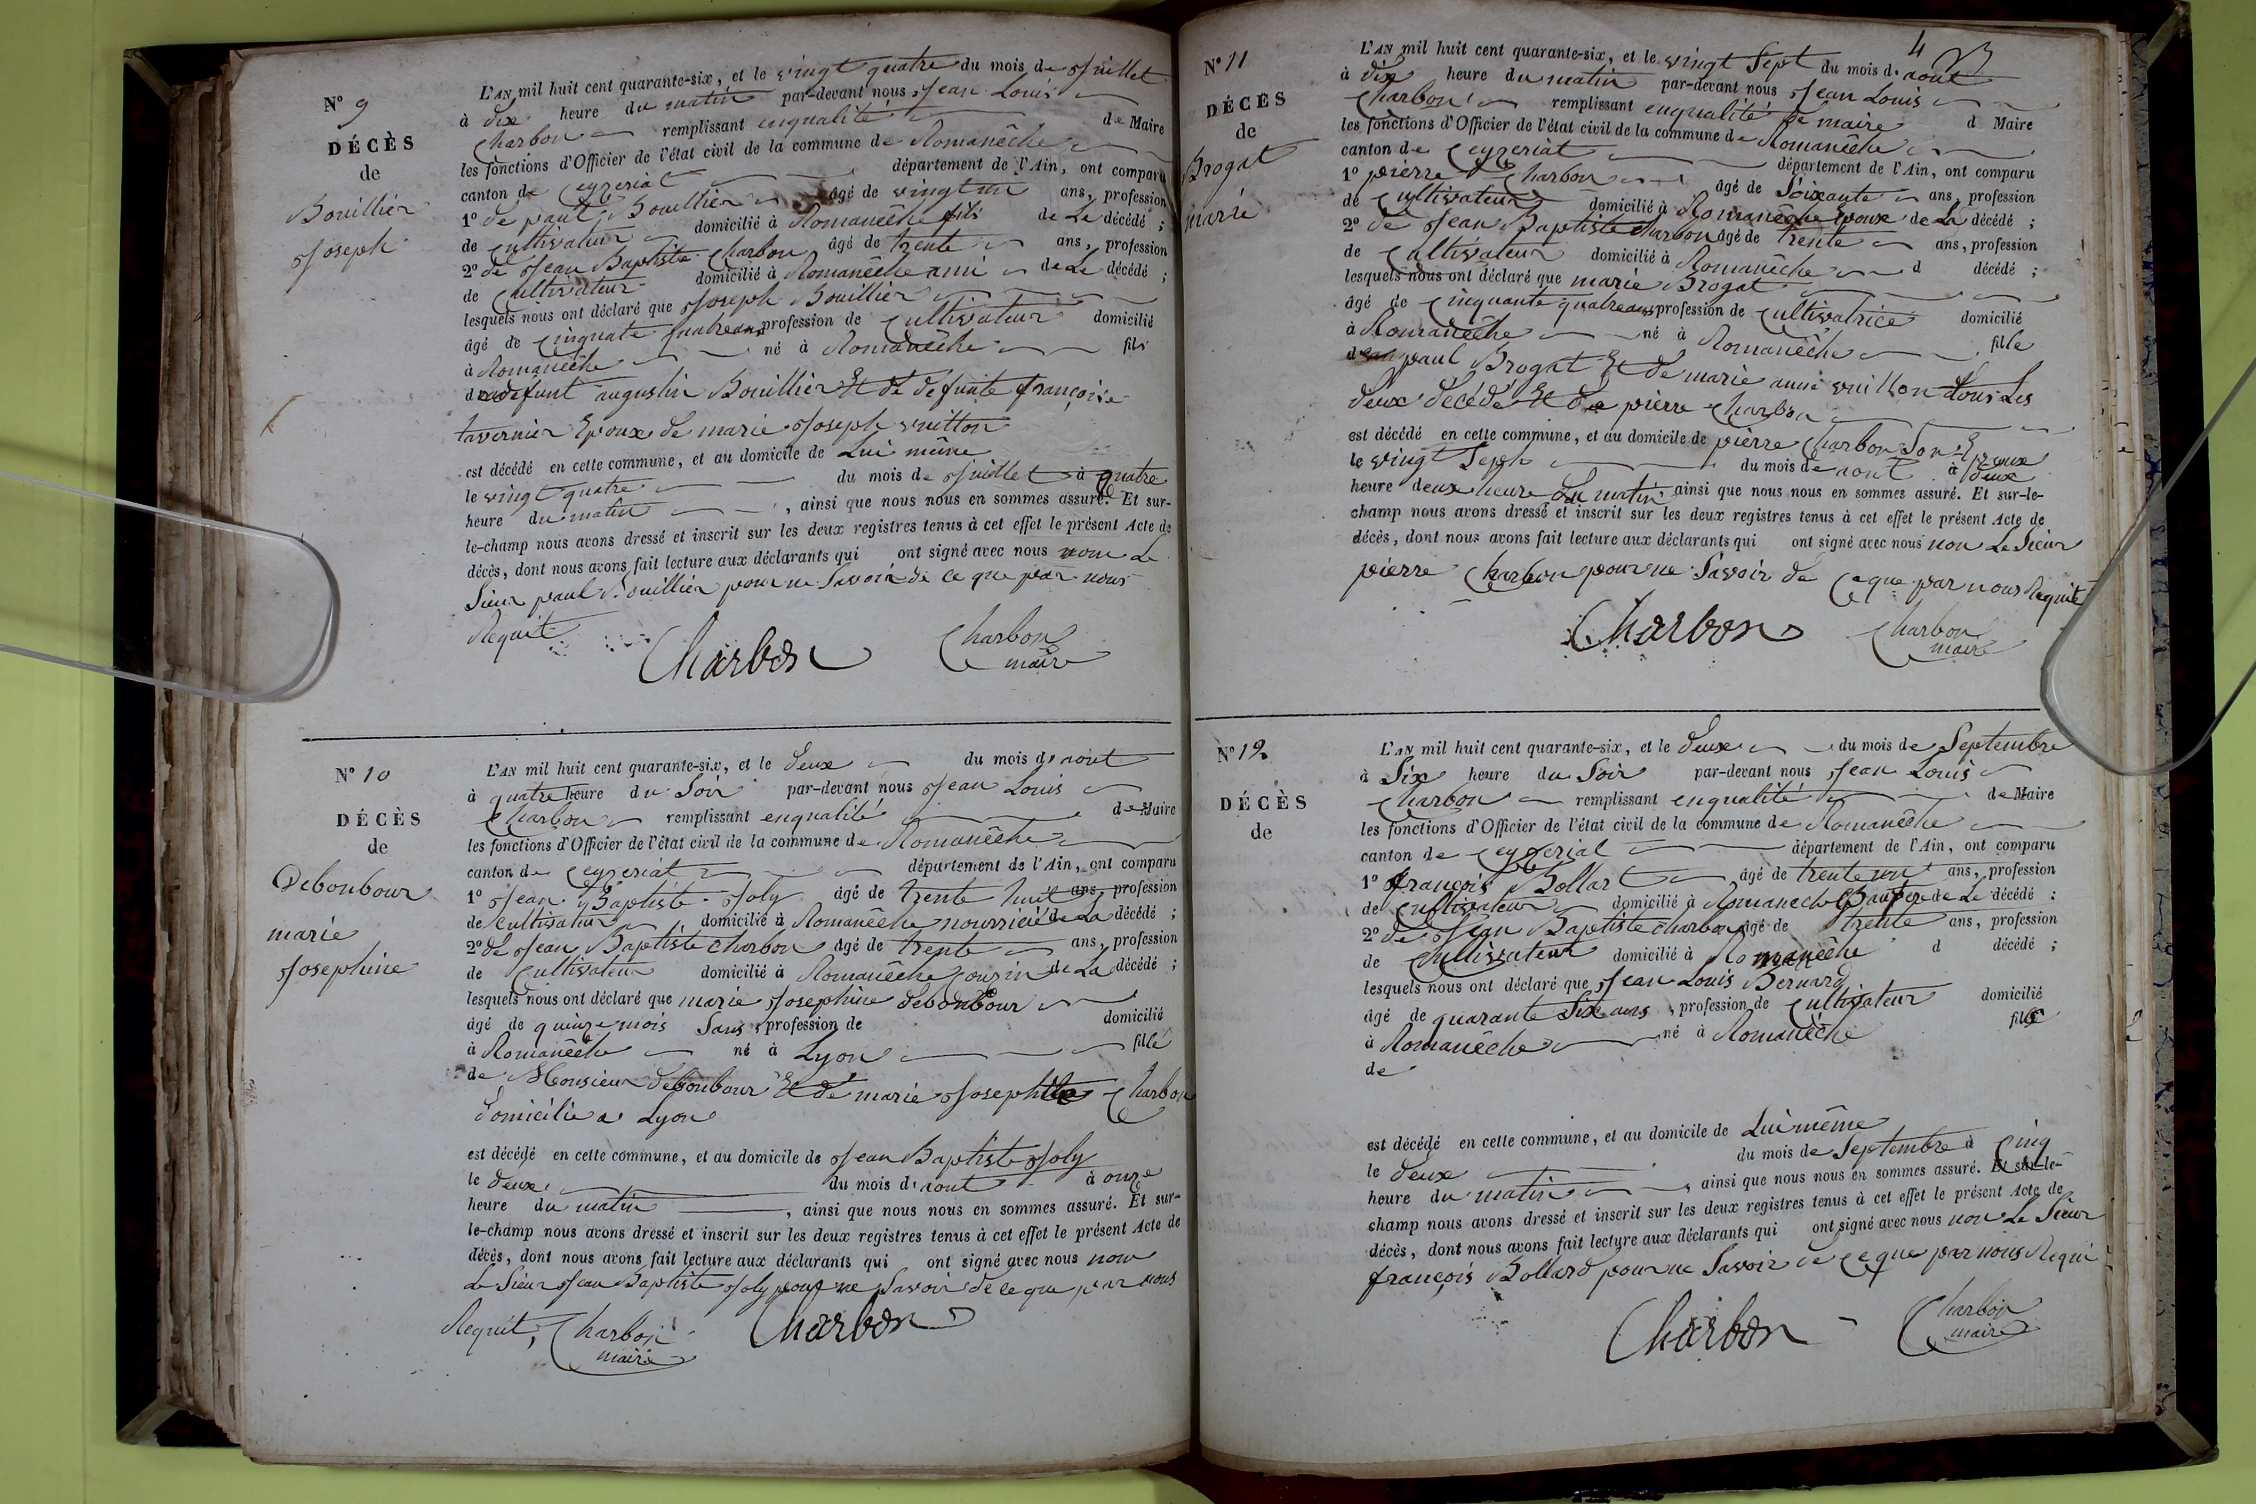 N° 9
DÉCÈS
de
Bouillier
Joseph
L'AN mil huit cent quarante-six, et le vingt quatre du mois de Juillet
à dix heure du matin par-devant nous Jean Louis
Charbon remplissant enqualité de Maire
les fonctions d'Officier de l'état civil de la commune de Romanêche
canton de Ceyzeriat département de l'Ain, ont comparu
1° de paul Bouillier âgé de vingt un ans, profession
de Cultivateur domicilié à Romanêche fils de Le décédé ;
2° de Jean Baptiste Charbon âgé de trente ans, profession
de Cultivateur domicilié à Romanêche ami de Le décédé ;
lesquels nous ont déclaré que Joseph Bouillier
âgé de Cinquate quatre ans profession de Cultivateur domicilié
à Romanêche né à Romanêche fils
de defunt augustin Bouillier Et de defunte françoise
tavernier Epoux de marie Joseph vuitton
est décédé en cette commune, et au domicile de Lui même
le vingt quatre du mois de Juillet à quatre
heure du matin , ainsi que nous nous en sommes assuré. Et sur-
le-champ nous avons dressé et inscrit sur les deux registres tenus à cet effet le présent Acte de
décès, dont nous avons fait lecture aux déclarants qui ont signé avec nous non Le
Sieur paul Bouillier pour ne Savoir de ce que par nous
Requit
Charbon Charbon
maire
N° 10
DÉCÈS
de
Debonbour
marie
Josephine
L'AN mil huit cent quarante-six, et le deux du mois d'aout
à quatre heure du Soir par-devant nous Jean Louis
Charbon remplissant enqualité de Maire
les fonctions d'Officier de l'état civil de la commune de Romanêche
canton de Ceyzeriat département de l'Ain, ont comparu
1° Jean Baptiste Joly âgé de trente huit ans, profession
de Cultivateur domicilié à Romanêche nourricié de La décédé ;
2° de Jean Baptiste Charbon âgé de trente ans, profession
de Cultivateur domicilié à Romanêche Cousin de La décédé ;
lesquels nous ont déclaré que marie Josephine debonbour
âgé de quinze mois Sans profession de domicilié
à Romanêche né à Lyon fille
de Monsieur debonbour Et de marie Josephte Charbon
domicilié a Lyon
est décédé en cette commune, et au domicile de Jean Baptiste Joly
le deux du mois d'aout à onze
heure du matin , ainsi que nous nous en sommes assuré. Et sur-
le-champ nous avons dressé et inscrit sur les deux registres tenus à cet effet le présent Acte de
décès, dont nous avons fait lecture aux déclarants qui ont signé avec nous non
Le Sieur Jean Baptiste Joly pour ne Savoir de ce que par nous
Requit, Charbon Charbon
maire
4
N° 11
DÉCÈS
de
Brogat
marie
L'AN mil huit cent quarante-six, et le vingt Sept du mois d'aout
à dix heure du matin par-devant nous Jean Louis
Charbon remplissant enqualité de maire d Maire
les fonctions d'Officier de l'état civil de la commune de Romanêche
canton de Ceyzeriat département de l'Ain, ont comparu
1° pierre Charbon âgé de Soixante ans, profession
de Cultivateur domicilié à Romanêche Epoux de La décédé ;
2° de Jean Baptiste Charbon âgé de trente ans, profession
de Cultivateur domicilié à Romanêche d décédé ;
lesquels nous ont déclaré que marie Brogat
âgé de Cinquante quatre ans profession de Cultivatrice domicilié
à Romanêche né à Romanêche fille
de paul Brogat Et de marie anne vuitton tous Les
deux décédé Et de pierre Charbon
est décédé en cette commune, et au domicile de pierre Charbon Son Epoux
le vingt Sept du mois de aout à deux
heure deux heure du matin, ainsi que nous nous en sommes assuré. Et sur-le-
champ nous avons dressé et inscrit sur les deux registres tenus à cet effet le présent Acte de
décès, dont nous avons fait lecture aux déclarants qui ont signé avec nous non Le Sieur
pierre Charbon pour ne Savoir de Ce que par nous Requit
Charbon Charbon
maire
N° 12
DÉCÈS
de
L'AN mil huit cent quarante-six, et le deux du mois de Septembre
à Six heure du Soir par-devant nous Jean Louis
Charbon remplissant enqualité de Maire
les fonctions d'Officier de l'état civil de la commune de Romanêche
canton de Ceyzeriat département de l'Ain, ont comparu
1° françois Bollard âgé de trente un ans, profession
de Cultivateur domicilié à Romaneche de Le décédé ;
2° de Jean Baptiste Charbon âgé de trente ans, profession
de Cultivateur domicilié à Romanêche d décédé ;
lesquels nous ont déclaré que Jean Louis Bernard
âgé de quarante Six ans, profession de Cultivateur domicilié
à Romanêche né à Romanêche fils
de
est décédé en cette commune, et au domicile de Lui même
le deux du mois de Septembre à Cinq
heure du matin , ainsi que nous nous en sommes assuré. Et sur-le-
champ nous avons dressé et inscrit sur les deux registres tenus à cet effet le présent Acte de
décès, dont nous avons fait lecture aux déclarants qui ont signé avec nous non Le Sieur
françois Bollard pour ne Savoir de Ce que par nous Requi
Charbon Charbon
maire